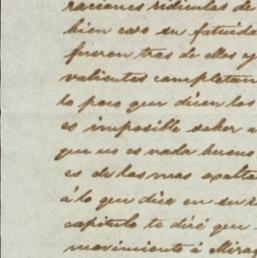 raciones ridiculas de
bien caro su fatuida
fueron tras de ellos y
valientes completam
lo poco que dicen los
es imposible saber a
que no es nada bueno
es de las mas exalta
á lo que dice en su
capitulo te diré que
movimiento á Mirag